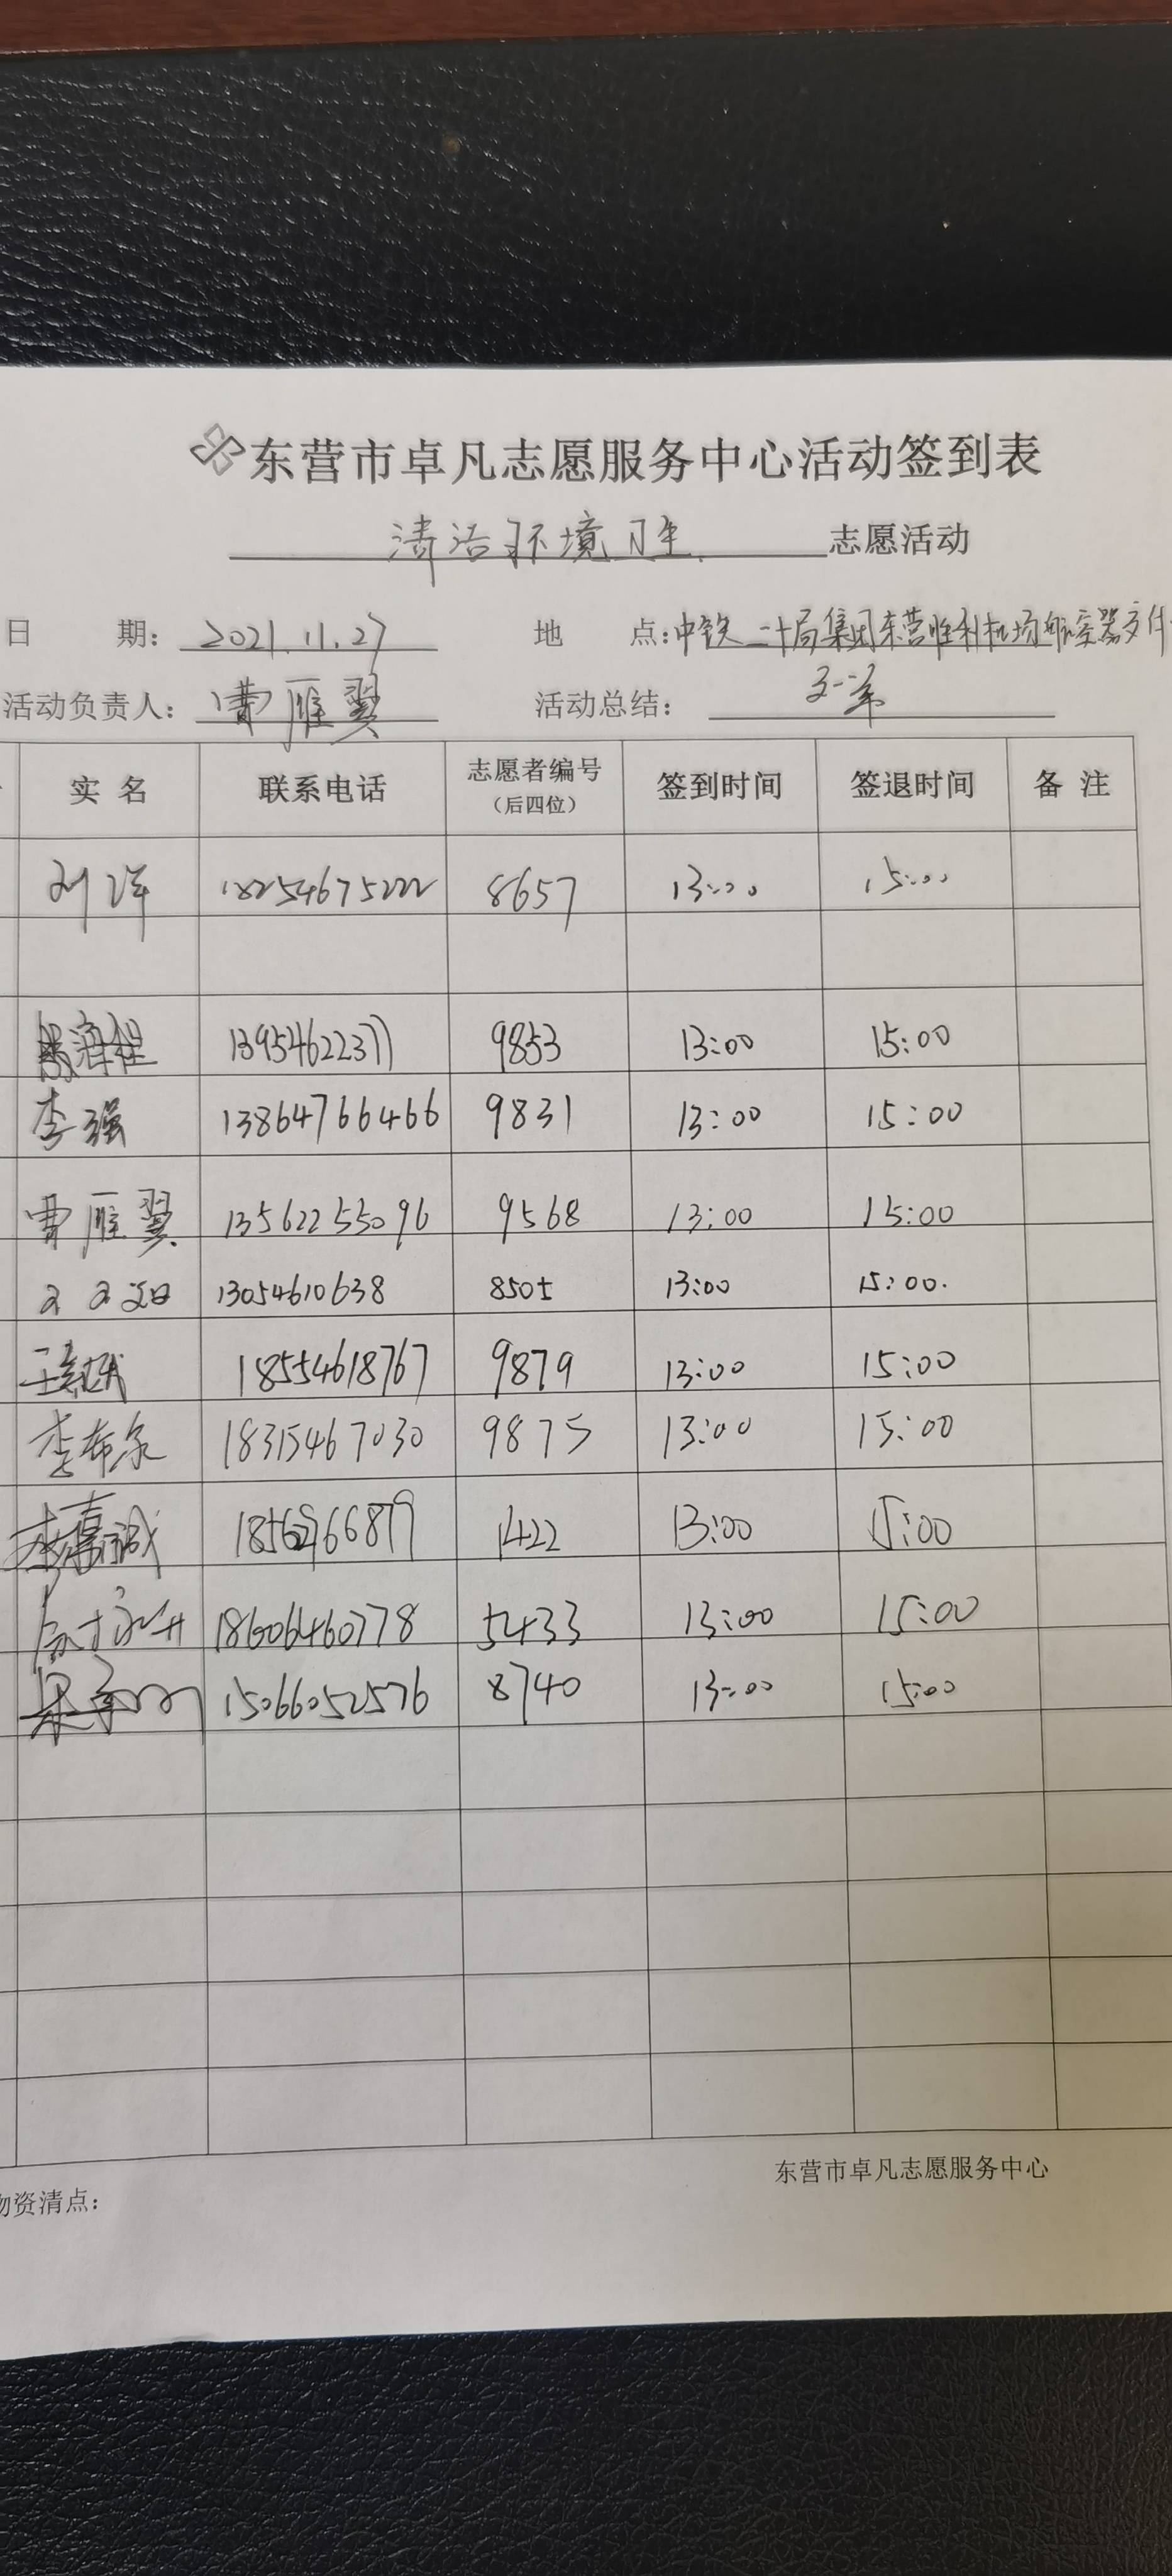 东营市卓凡志愿服务中心活动签到表
清洁环境卫生 志愿活动
日 期: 2021.11.27 地 点: 中铁二十局集团东营胜利机场
活动负责人: 曹雁翼 活动总结:
实 名 联系电话 志愿者编号 (后四位) 签到时间 签退时间 备 注
刘洋 18254675222 8657 13:00 15:00
13954622377 9853 13:00 15:00
李强 13864766466 9831 13:00 15:00
曹雁翼 13562255096 9568 13:00 15:00
13054610638 8505 13:00 15:00.
18554618767 9879 13:00 15:00
李希泉 18315467030 9875 13:00 15:00
李嘉诚 1422 13:00 15:00
18606460778 5433 13:00 15:00
15066052576 8740 13:00 15:00
东营市卓凡志愿服务中心
物资清点: